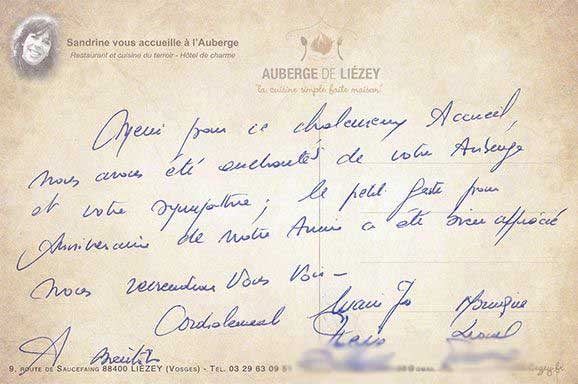 Sandrine vous accueille à l'Auberge
Restaurant et cuisine du terroir - Hôtel de charme
AUBERGE DE LIÉZEY
"la cuisine simple faite maison"
Merci pour ce chaleureux Accueil,
nous avons été enchantés de votre Auberge
et votre sympathie; le petit geste pour
Anniversaire de notre Amie a été bien apprécié
nous reviendrons Vous Voir -
Cordialement Marie Jo Monique
A Bientôt Lionel
9, ROUTE DE SAUCEFAING 88400 LIÉZEY (VOSGES) - TEL. 03 29 63 09 5